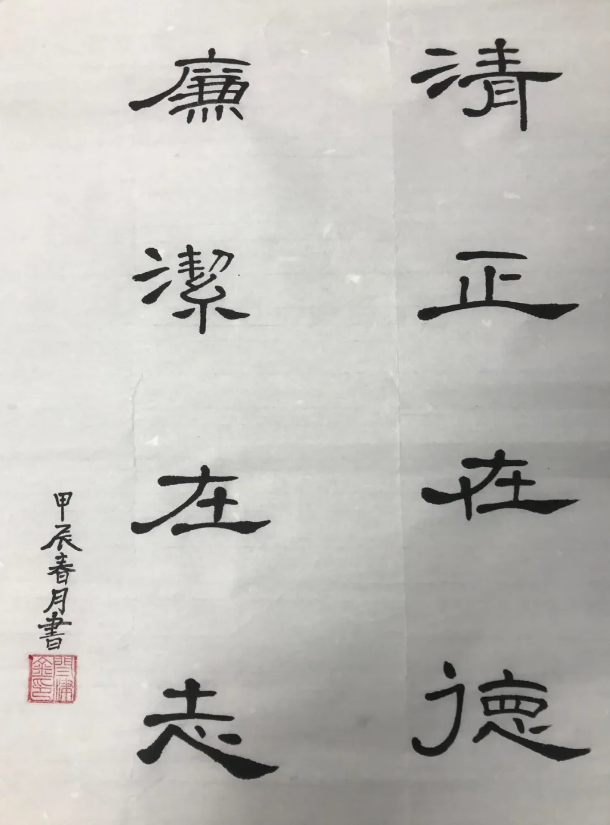 清正在德
廉潔在志
甲辰春月書